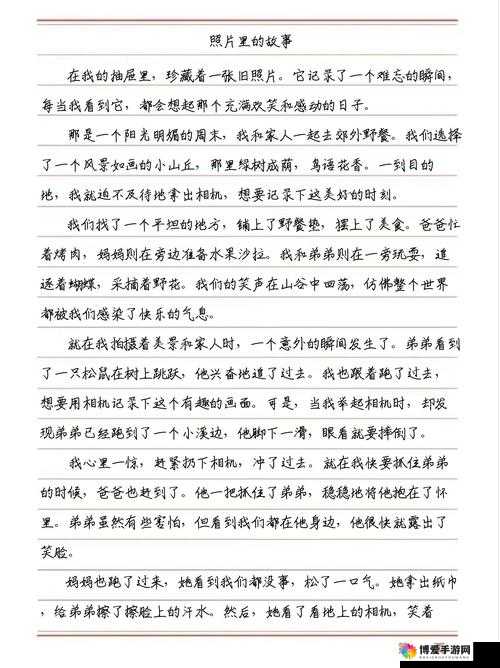 照片里的故事
在我的抽屉里，珍藏着一张旧照片。它记录了一个难忘的瞬间，
每当我看到它，都会想起那个充满欢笑和感动的日子。
那是一个阳光明媚的周末，我和家人一起去郊外野餐。我们选择
了一个风景如画的小山丘，那里绿树成荫，鸟语花香。一到目的
地，我就迫不及待地拿出相机，想要记录下这美好的时刻。
我们找了一个平坦的地方，铺上了野餐垫，摆上了美食。爸爸忙
着烤肉，妈妈则在旁边准备水果沙拉。我和弟弟则在一旁玩耍，追
逐着蝴蝶，采摘着野花。我们的笑声在山谷中回荡，仿佛整个世界
都被我们感染了快乐的气息。
就在我拍摄着美景和家人时，一个意外的瞬间发生了。弟弟看到
了一只松鼠在树上跳跃，他兴奋地追了过去。我也跟着跑了过去，
想要用相机记录下这个有趣的画面。可是，当我举起相机时，却发
现弟弟已经跑到了一个小溪边，他脚下一滑，眼看就要摔倒了。
我心里一惊，赶紧扔下相机，冲了过去。就在我快要抓住弟弟
的时候，爸爸也赶到了。他一把抓住了弟弟，稳稳地将他抱在了怀
里。弟弟虽然有些害怕，但看到我们都在他身边，他很快就露出了
笑脸。
妈妈也跑了过来，她看到我们都没事，松了一口气。她拿出纸巾
，给弟弟擦了擦脸上的汗水。然后，她看了看地上的相机，笑着
博爱手游网